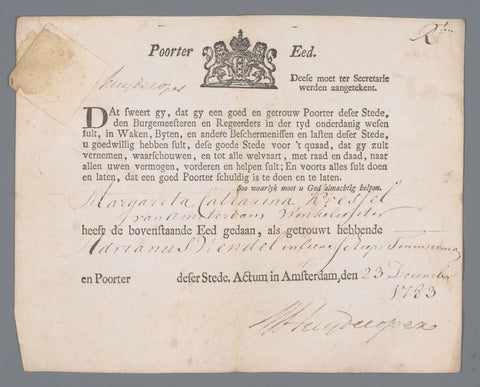 Poorter Eed.
Huydecoper
Deese moet ter Secretarie
werden aangetekent.
DAt sweert gy, dat gy een goed en getrouw Poorter deser Stede,
den Burgemeesteren en Regeerders in der tyd onderdanig wesen
sult, in Waken, Byten, en andere Beschermenissen en lasten deser Stede,
u goedwillig hebben sult, dese goede Stede voor 't quaad, dat gy zult
vernemen, waarschouwen, en tot alle welvaart, met raad en daad, naar
allen uwen vermogen, vorderen en helpen sult; En voorts alles sult doen
en laten, dat een goed Poorter schuldig is te doen en te laten.
Soo waarlyk moet u God almachtig helpen.
Margareta Catharina Kressel
van Amsterdam Winkelierster
heeft de bovenstaande Eed gedaan, als getrouwt hebbende
Adrianus Wendel in leeve Scheeps Timmerman
en Poorter deser Stede. Actum in Amsterdam, den 23 December
1783
Huydecoper